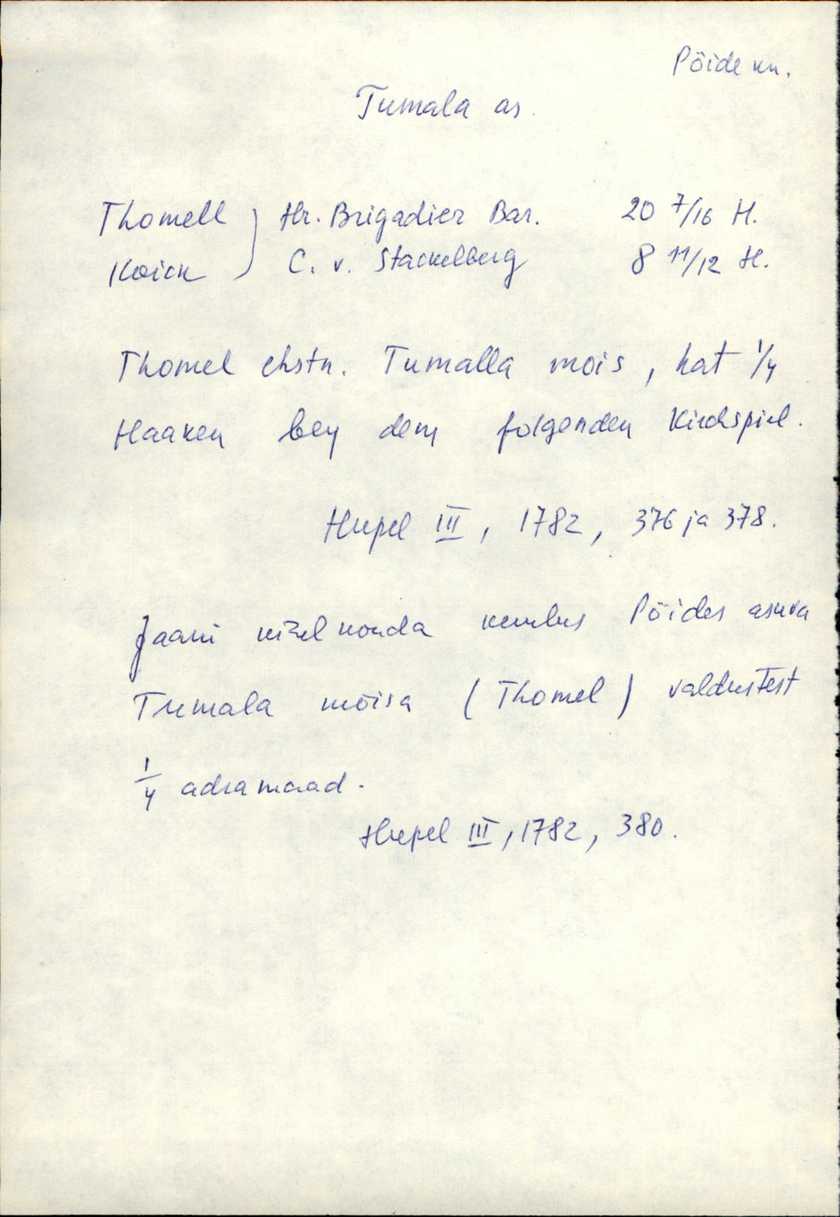 Pöide kn.
Tumala as.
Thomell ) Hr. Brigadier Bar. 20 7/16 H.
Koick ) C. v. Stackelberg 8 11/12 H.
Thomel ehstn. Tumalla mois, hat 1/4
Haaken bey dem folgenden Kirchspiel.
Hupel III, 1782, 376 ja 378.
Jaani kihelkonda kuulus Pöides asuva
Tumala mõisa (Thomel) valdustest
1/4 adramaad.
Hupel III, 1782, 380.